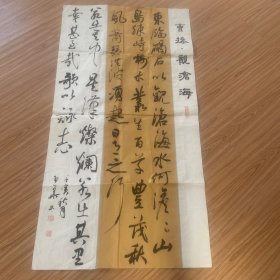 曹操·觀滄海
東臨碣石以觀滄海水何澹澹山
島竦峙樹木叢生百草豐茂秋
風蕭瑟洪波湧起日月之行
若出其中星漢燦爛若出其里
幸甚至哉歌以詠志